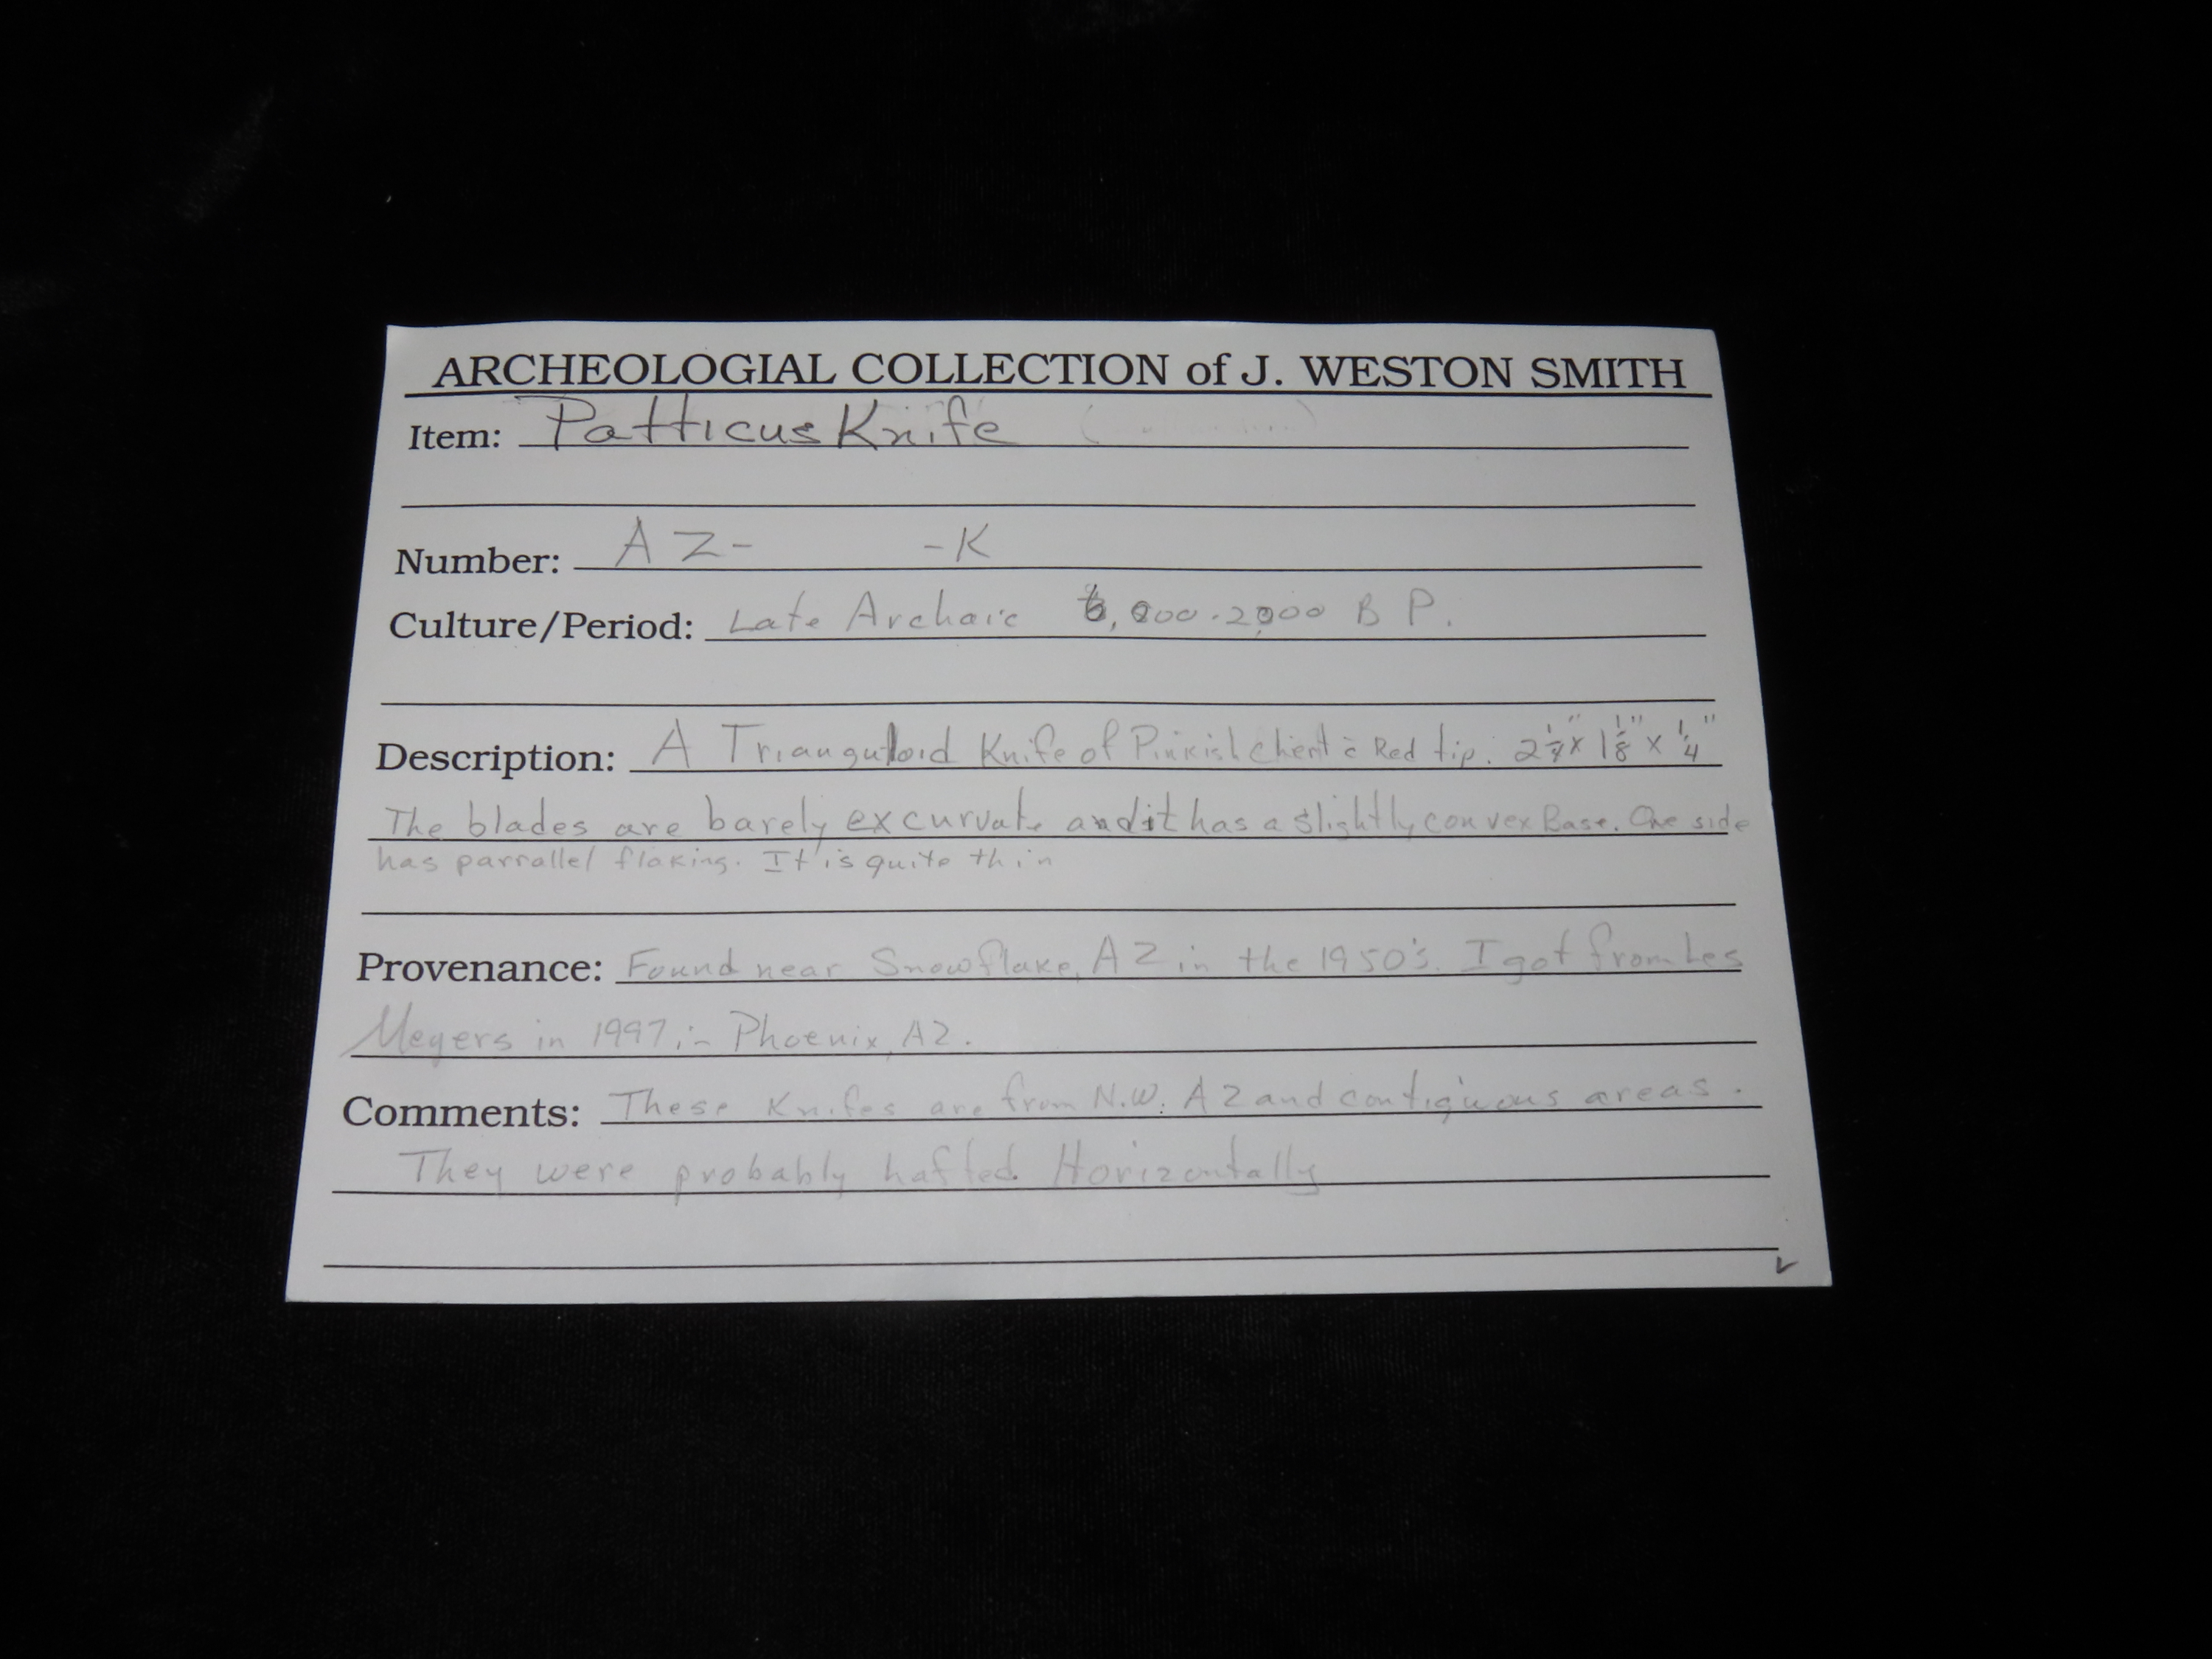 ARCHEOLOGIAL COLLECTION of J. WESTON SMITH
Item: Patticus Knife
Number: AZ- -K
Culture/Period: Late Archaic 6,000-2000 B P.
Description: A Trianguloid Knife of Pinkish chert c̄ Red tip. 2 1/4" x 1 1/8" x 1/4"
The blades are barely excurvate and it has a slightly convex Base. One side
has parrallel flaking. It is quite thin
Provenance: Found near Snowflake, AZ in the 1950's. I got from Les
Meyers in 1997 in Phoenix, AZ.
Comments: These Knifes are from N.W. AZ and contiguous areas.
They were probably hafted Horizontally